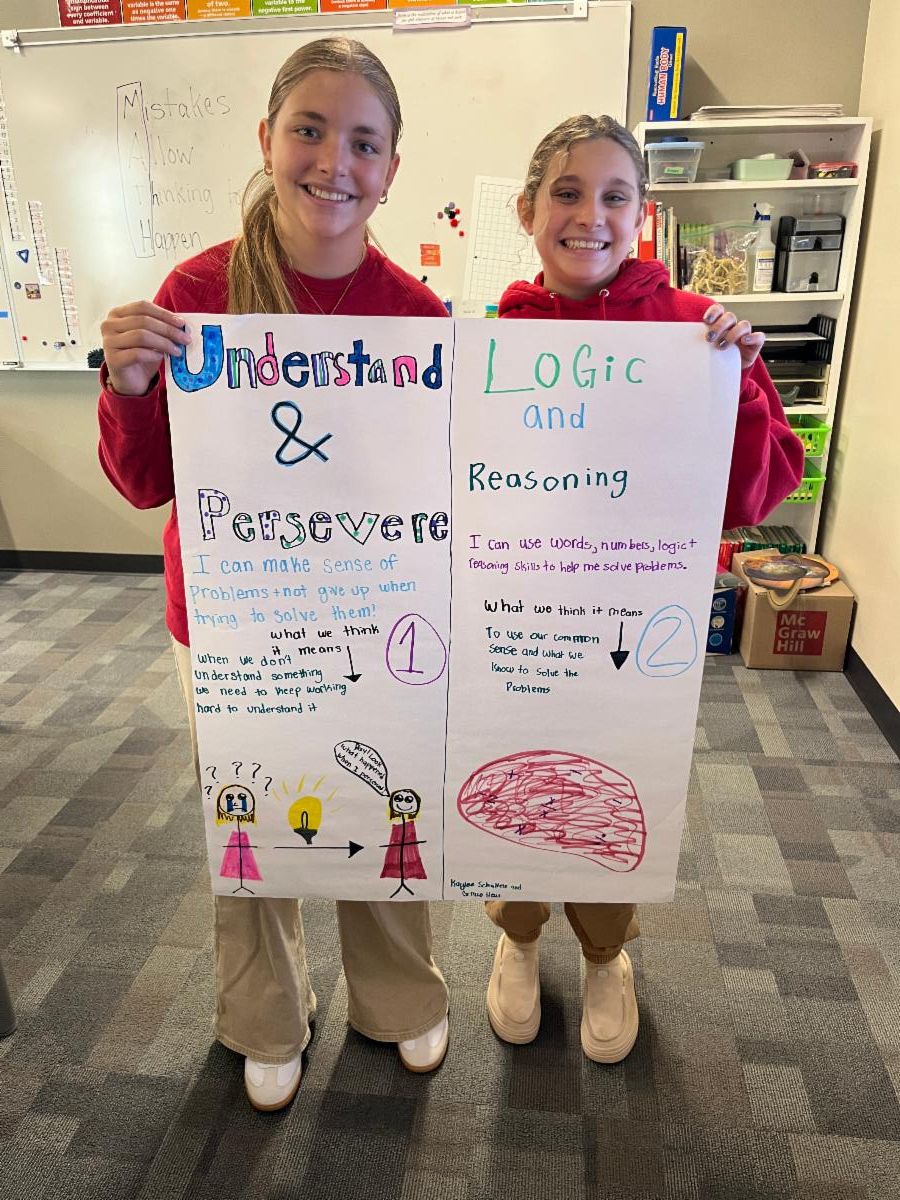 variable is the same as negative one times the variable.
of two.
variable to the negative first power.
Mistakes
Allow
Thinking to
Happen
HUMAN BODY
Understand
&
Persevere
I can make sense of
Problems + not give up when
trying to solve them!
what we think
it means
1
when we don't
understand something
we need to keep working
hard to understand it
? ? ? ? ?
Hey! Look
what happened
when I persevere!
LOGic
and
Reasoning
I can use words, numbers, logic +
reasoning skills to help me solve problems.
What we think it means
2
To use our common
sense and what we
know to solve the
Problems
Kaylee
and
Mc
Graw
Hill